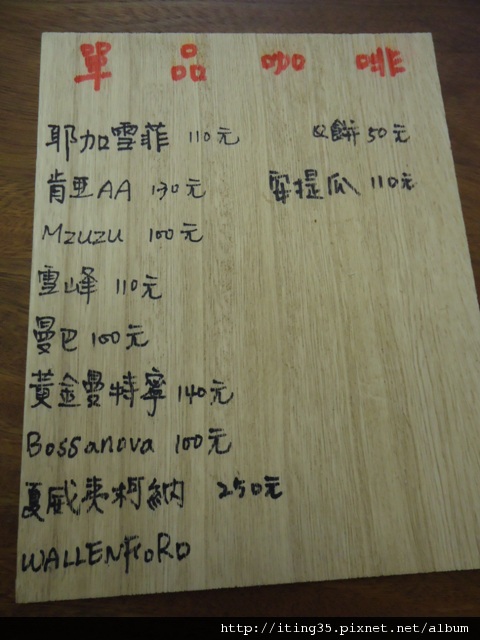 單品咖啡
耶加雪菲 110元
肯亞AA 130元
Mzuzu 100元
雪峰 110元
曼巴 100元
黃金曼特寧 140元
Bossanova 100元
夏威夷柯納 250元
WALLENFORD
Q餅 50元
安提瓜 110元
http://iting35.pixnet.net/album